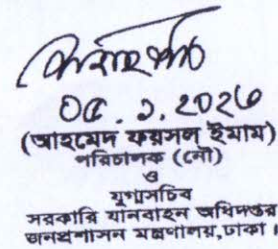 ০৫.১.২০২৬
(আহমেদ ফয়সল ইমাম)
পরিচালক (নৌ)
ও
যুগ্মসচিব
সরকারি যানবাহন অধিদপ্তর
জনপ্রশাসন মন্ত্রণালয়, ঢাকা।